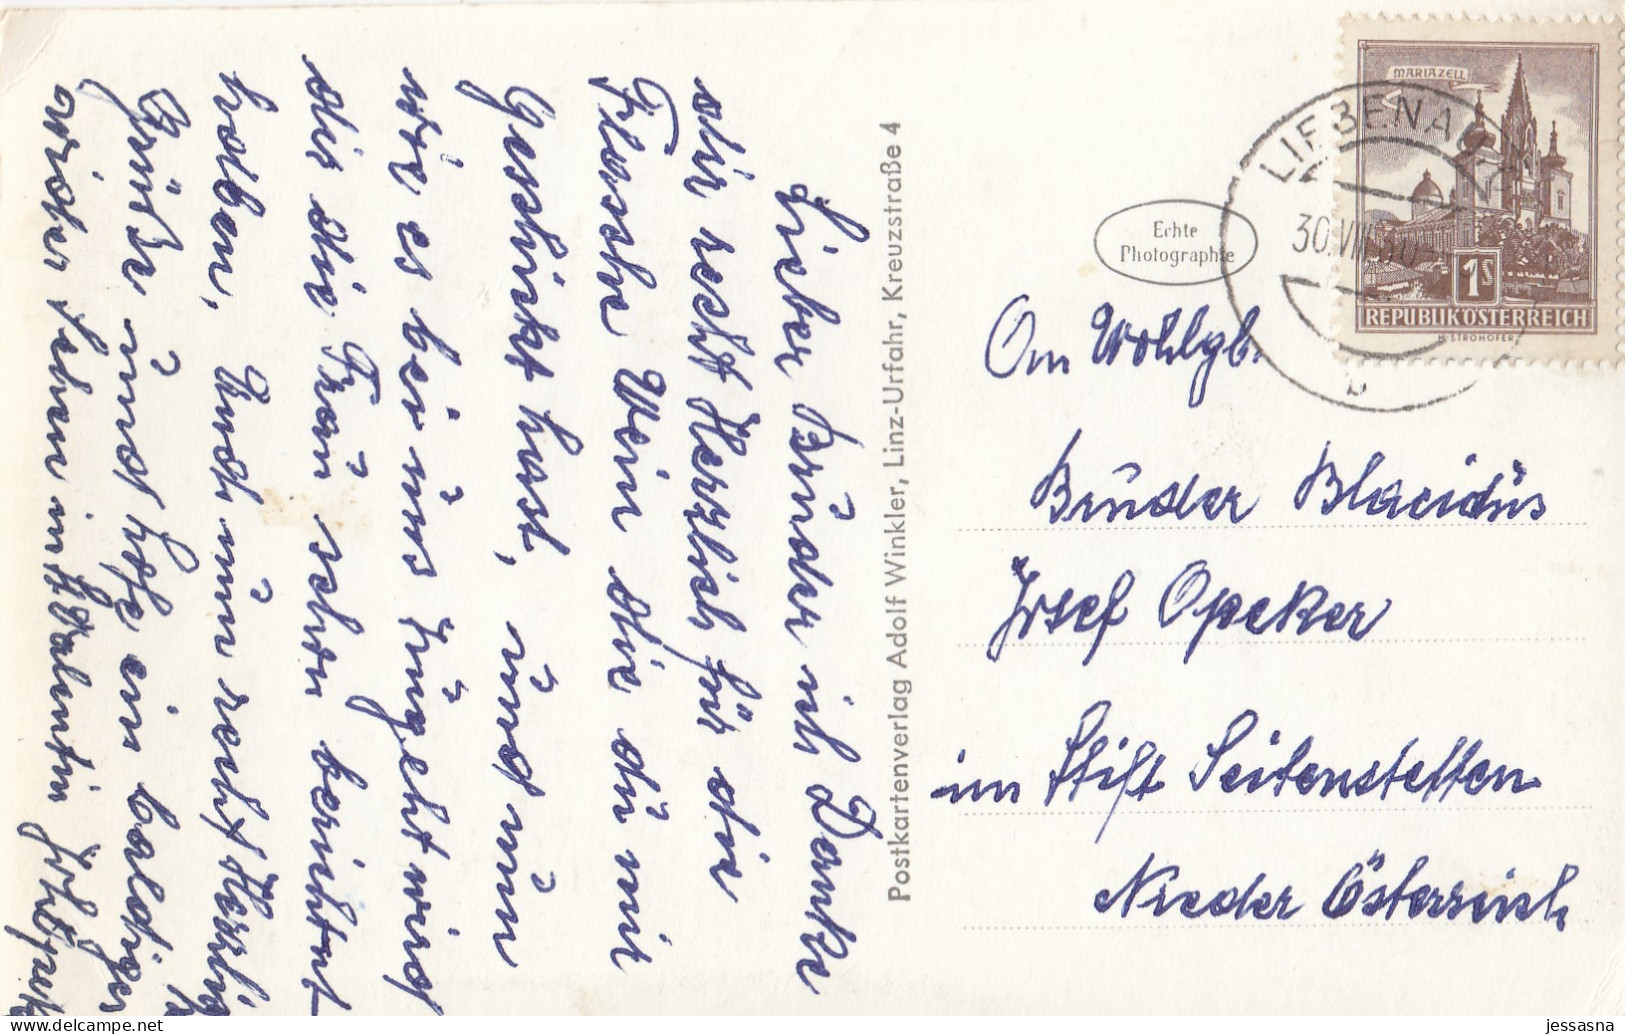 Lieber Bruder ich Danke
dir recht Herzlich für die
Flasche Wein die du mir
Geschickt hast, und nun
wie es bei uns zugeht wird
dir die Frau schon berichtet
haben. Und nun recht Herzlig
Grüße und hoffe ein baldiges
wieder sehen in St. Valentin
Postkartenverlag Adolf Winkler, Linz-Urfahr, Kreuzstraße 4
Echte
Photographie
MARIAZELL
1S
REPUBLIK ÖSTERREICH
H. STROHOFER
LIEBENAU
30.VII
b
An Wohlgb.
Bruder Blacidus
Josef Opeker
im Stift Seitenstetten
Nieder Österreich
jessasna